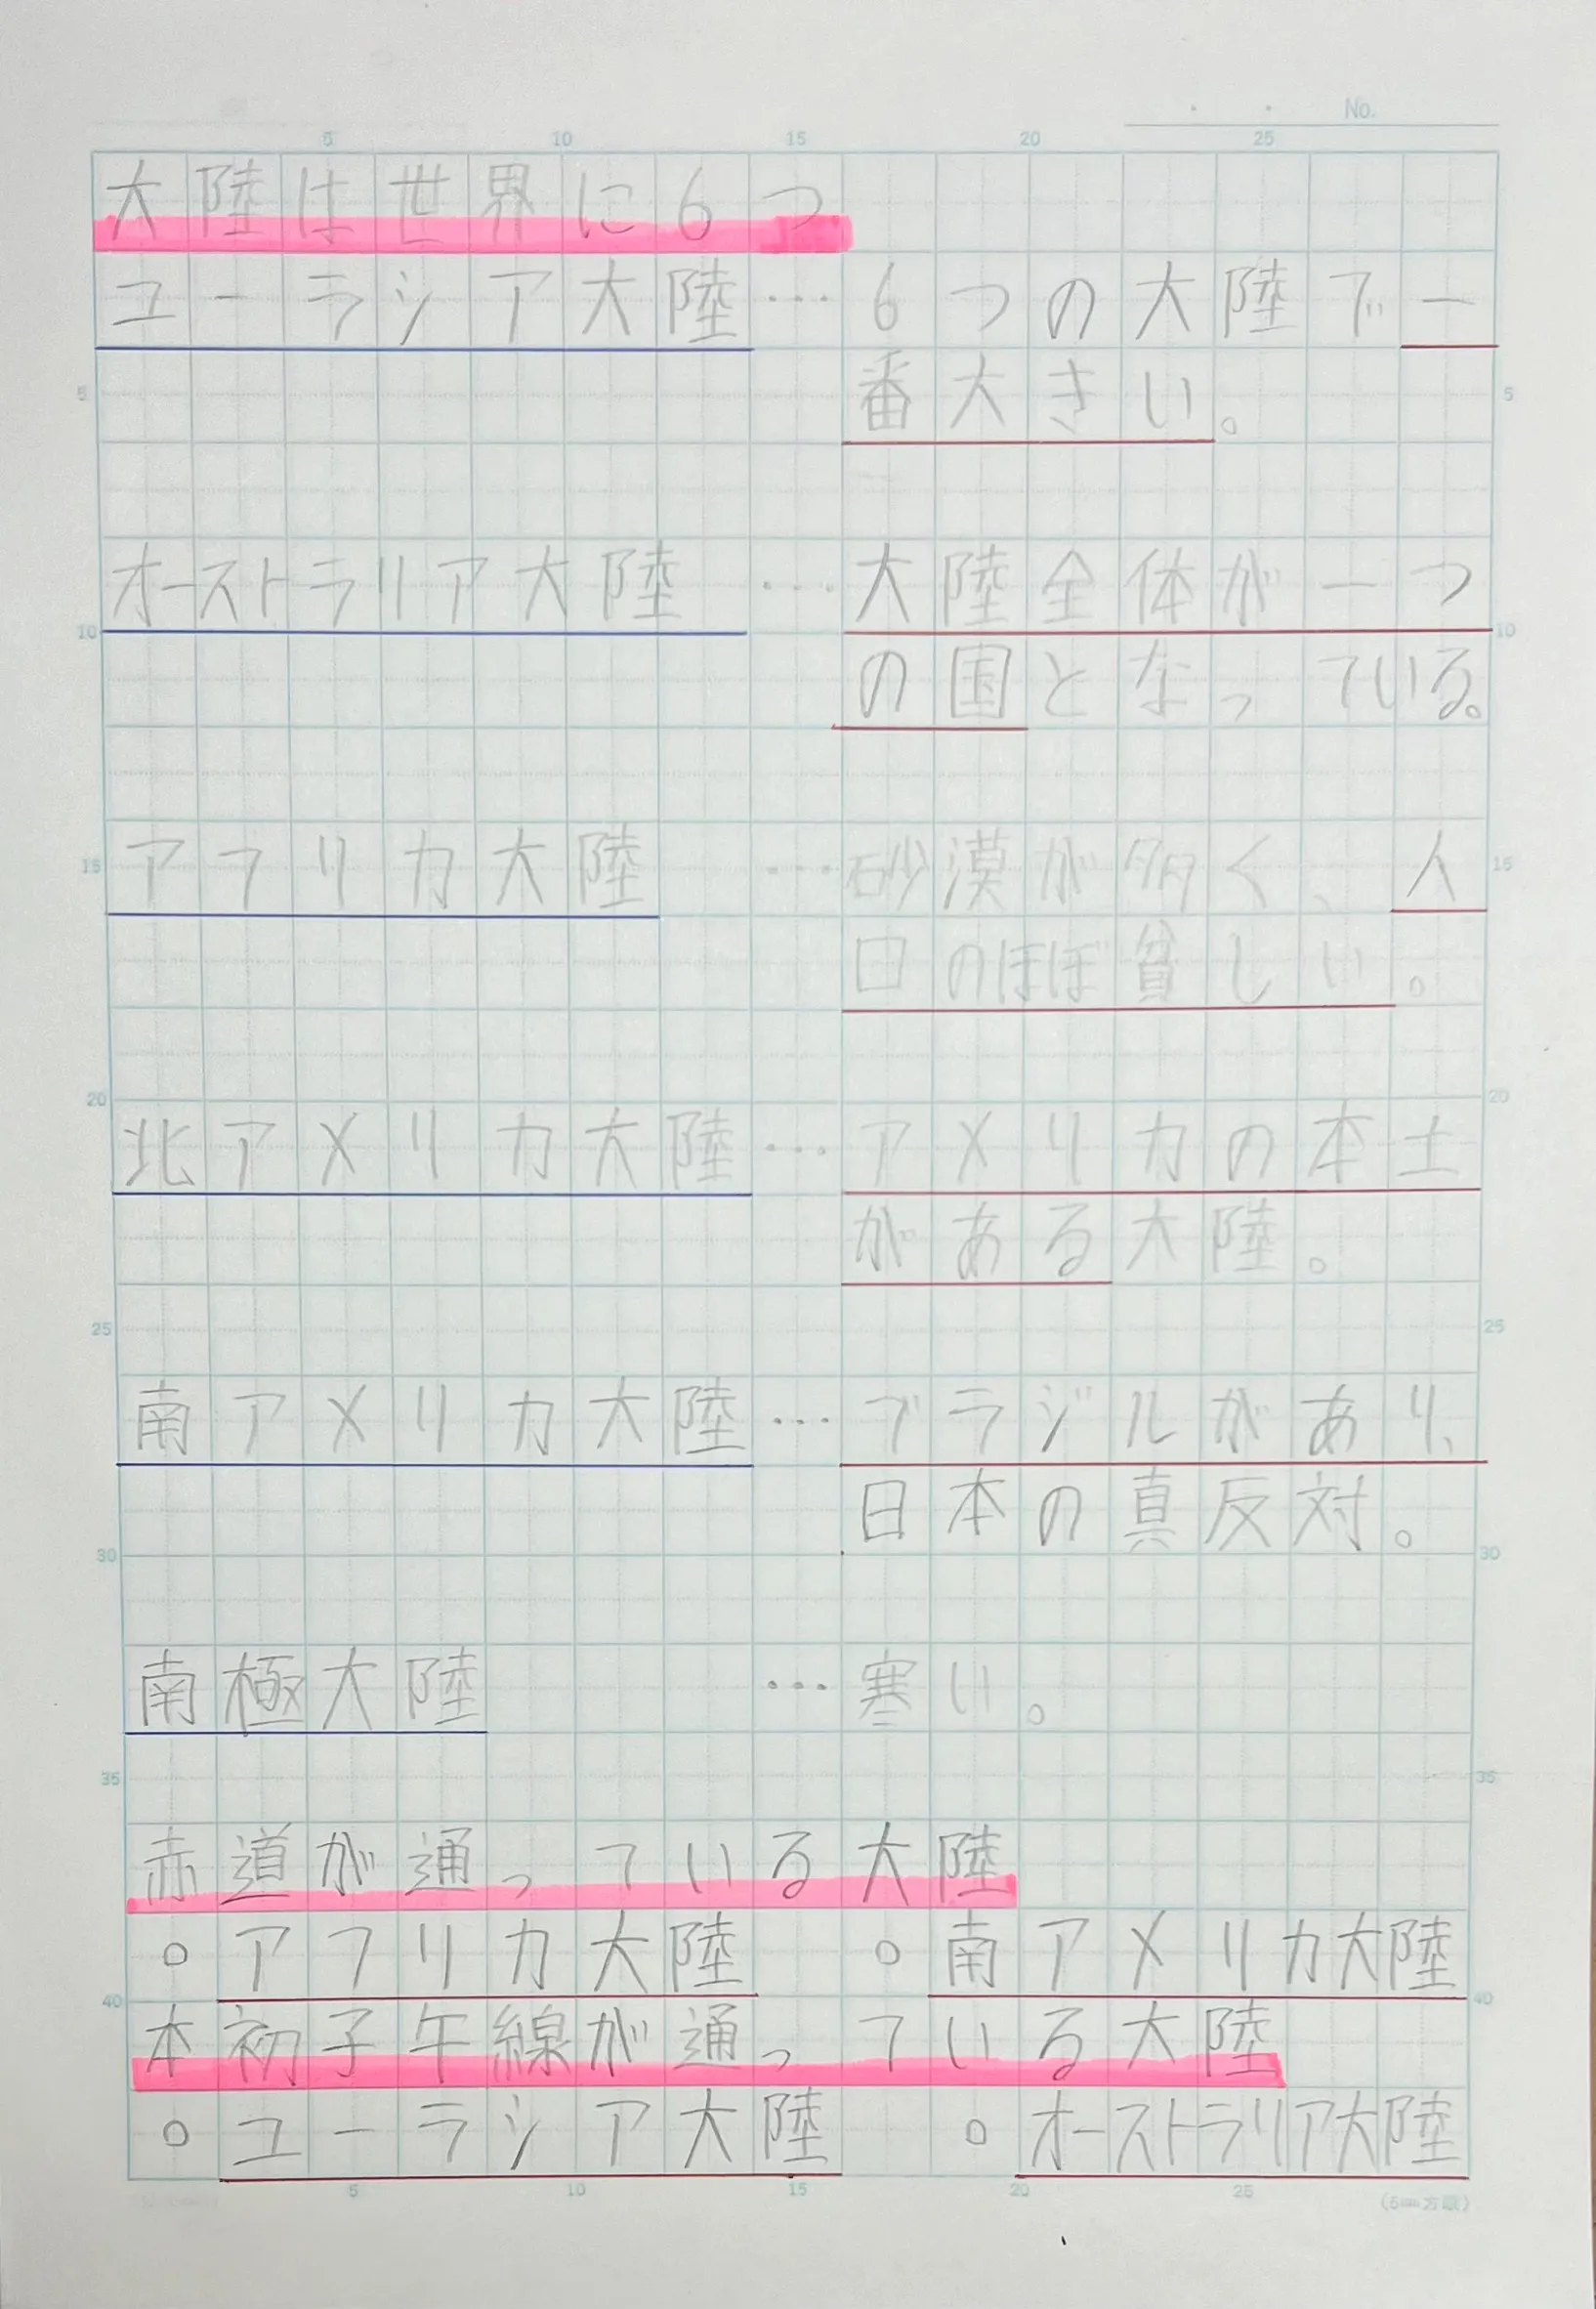 No.
5 10 15 20 25
大陸は世界に6つ
ユーラシア大陸…6つの大陸で一
5 番大きい。 5
オーストラリア大陸…大陸全体が一つ
10 10
の国となっている。
15 アフリカ大陸…砂漠が多く、人 15
口のほぼ貧しい。
20 20
北アメリカ大陸…アメリカの本土
がある大陸。
25 25
南アメリカ大陸…ブラジルがあり、
日本の真反対。
30 30
南極大陸…寒い。
35 35
赤道が通っている大陸
○アフリカ大陸 ○南アメリカ大陸
40 40
本初子午線が通っている大陸
○ユーラシア大陸 ○オーストラリア大陸
5 10 15 20 25 (5mm方眼)